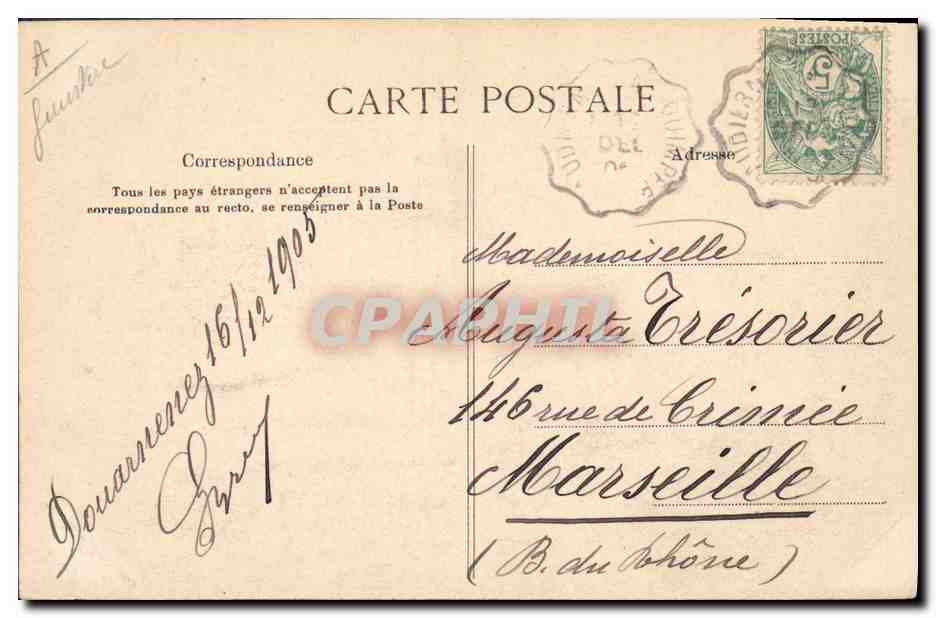 A
Finistère
CARTE POSTALE
Correspondance
Tous les pays étrangers n'acceptent pas la
correspondance au recto, se renseigner à la Poste
Adresse
POSTES
5
AUDIER
QUIMPER
DEC
05
Douarnenez 16/12 1905
Mademoiselle
Augusta Trésorier
146 rue de Crimée
Marseille
(B. du Rhône)
CPAPHIL